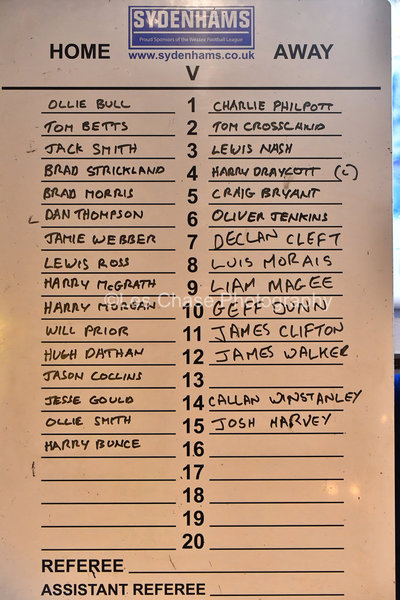 SYDENHAMS
Proud Sponsors of the Wessex Football League
HOME www.sydenhams.co.uk AWAY
V
OLLIE BULL 1 CHARLIE PHILPOTT
TOM BETTS 2 TOM CROSSLAND
JACK SMITH 3 LEWIS NASH
BRAD STRICKLAND 4 HARRY DRAYCOTT (C)
BRAD MORRIS 5 CRAIG BRYANT
DAN THOMPSON 6 OLIVER JENKINS
JAMIE WEBBER 7 DECLAN CLEFT
LEWIS ROSS 8 LUIS MORAIS
HARRY McGRATH 9 LIAM MAGEE
©Les Chase Photography
HARRY MORGAN 10 GEFF DUNN
WILL PRIOR 11 JAMES CLIFTON
HUGH DATHAN 12 JAMES WALKER
JASON COLLINS 13
JESSE GOULD 14 CALLAN WINSTANLEY
OLLIE SMITH 15 JOSH HARVEY
HARRY BUNCE 16
17
18
19
20
REFEREE
ASSISTANT REFEREE